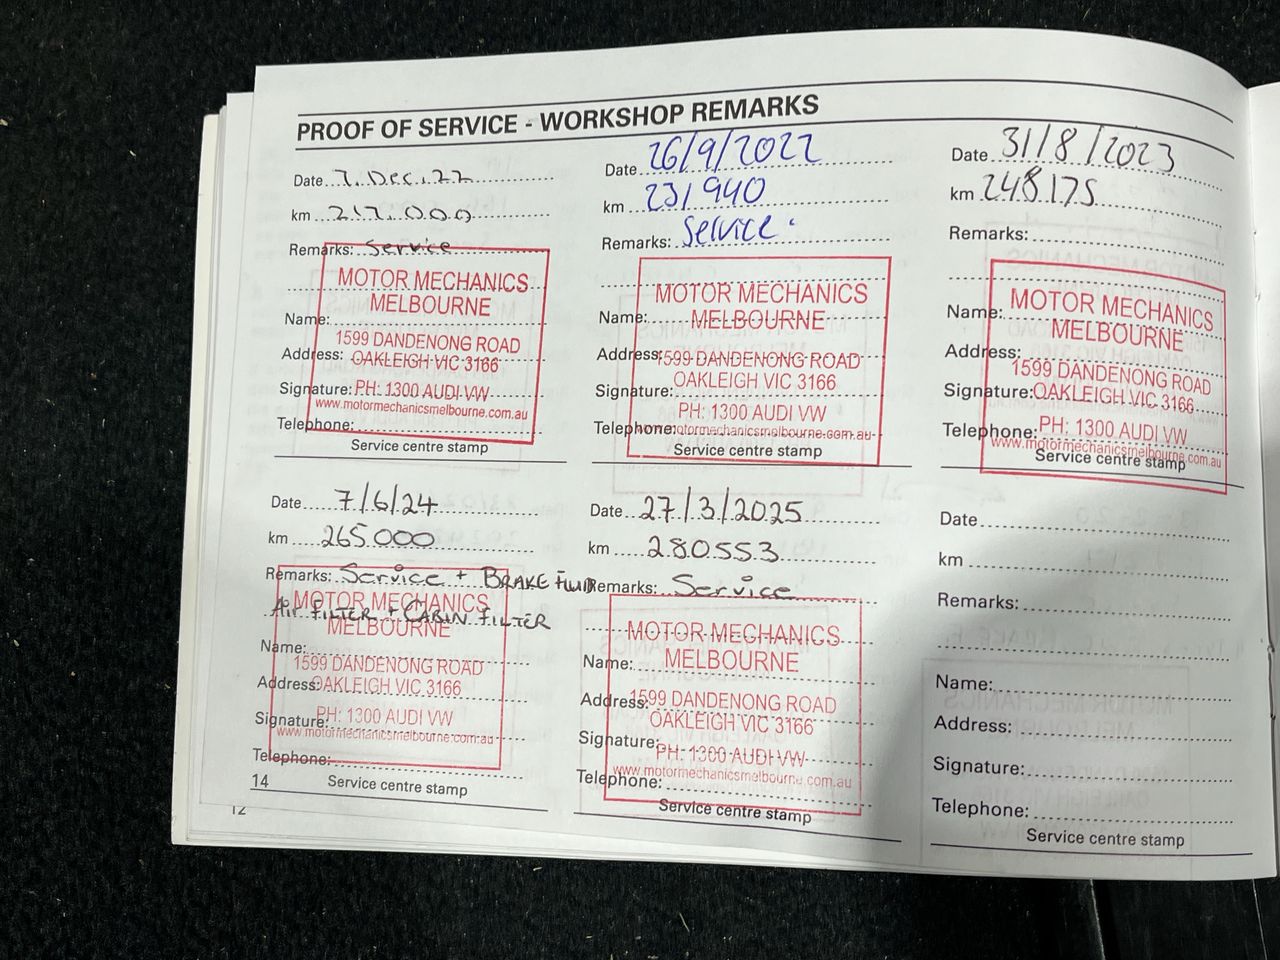 PROOF OF SERVICE - WORKSHOP REMARKS
Date 7. Dec. 22
km 217.000
Remarks: Service
MOTOR MECHANICS
MELBOURNE
Name:
1599 DANDENONG ROAD
Address: OAKLEIGH VIC 3166
Signature: PH: 1300 AUDI VW
www.motormechanicsmelbourne.com.au
Telephone:
Service centre stamp
Date 26/9/2022
km 231940
Remarks: Service.
MOTOR MECHANICS
Name: MELBOURNE
Address: 1599 DANDENONG ROAD
OAKLEIGH VIC 3166
Signature:
PH: 1300 AUDI VW
Telephone: www.motormechanicsmelbourne.com.au
Service centre stamp
Date 31/8/2023
km 248.175
Remarks:
MOTOR MECHANICS
Name: MELBOURNE
Address:
1599 DANDENONG ROAD
Signature: OAKLEIGH VIC 3166
Telephone: PH: 1300 AUDI VW
www.motormechanicsmelbourne.com.au
Service centre stamp
Date 7/6/24
km 265000
Remarks: Service + BRAKE FLUID
AIR FILTER + CABIN FILTER
MOTOR MECHANICS
MELBOURNE
Name:
1599 DANDENONG ROAD
Address: OAKLEIGH VIC 3166
Signature: PH: 1300 AUDI VW
www.motormechanicsmelbourne.com.au
Telephone:
Service centre stamp
Date 27/3/2025
km 280553
Remarks: Service
MOTOR MECHANICS
Name: MELBOURNE
Address: 1599 DANDENONG ROAD
OAKLEIGH VIC 3166
Signature: PH: 1300 AUDI VW
Telephone: www.motormechanicsmelbourne.com.au
Service centre stamp
Date
km
Remarks:
Name:
Address:
Signature:
Telephone:
Service centre stamp
14
12